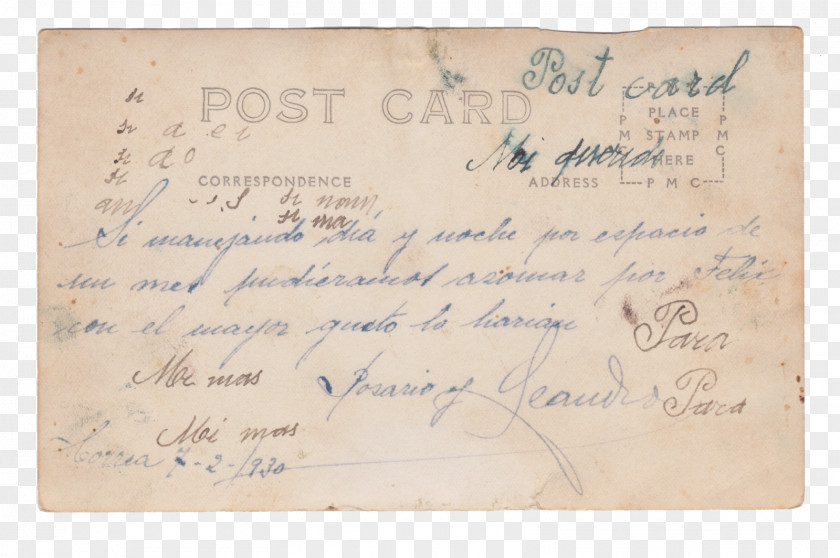 Post card
POST CARD
PMC
PLACE
STAMP
HERE
PMC
Mi querido
CORRESPONDENCE
ADDRESS
Si manejando día y noche por espacio de
un mes pudieramos asomar por Felix
con el mayor gusto lo harian
Para
Me mas
Rosario y Leandro
Para
Mi mas
Correa 7-2-930